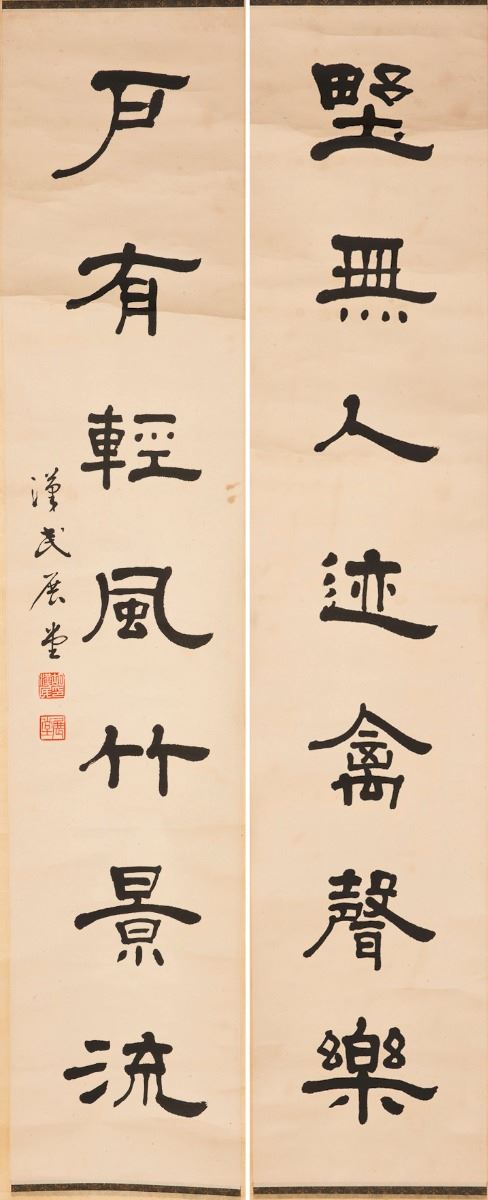 野無人迹禽聲樂
戶有輕風竹景流
漢民展堂